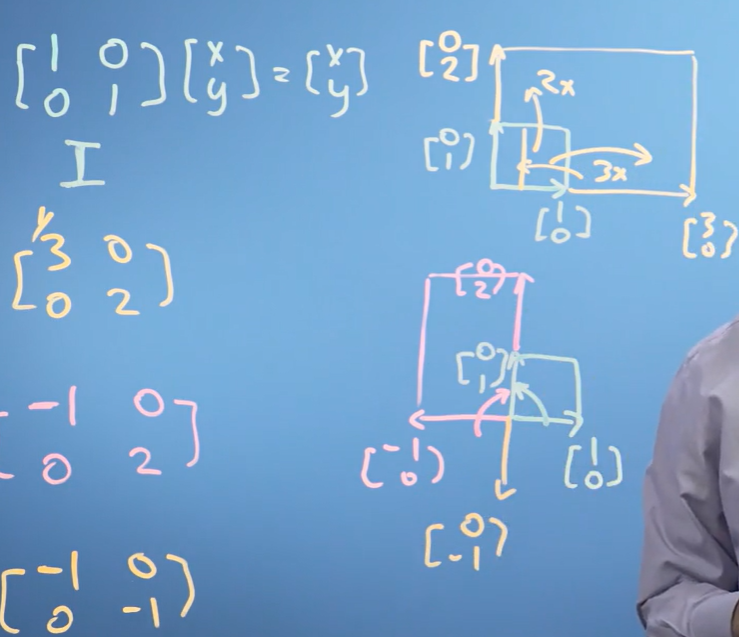 [1 0
0 1] [x
y] = [x
y]
I
[1/3 0
0 2]
[-1 0
0 2]
[-1 0
0 -1]
[0
2]
2x
[0
1]
3x
[1
0]
[3
0]
[0
2]
[0
1]
[-1
0]
[1
0]
[0
-1]